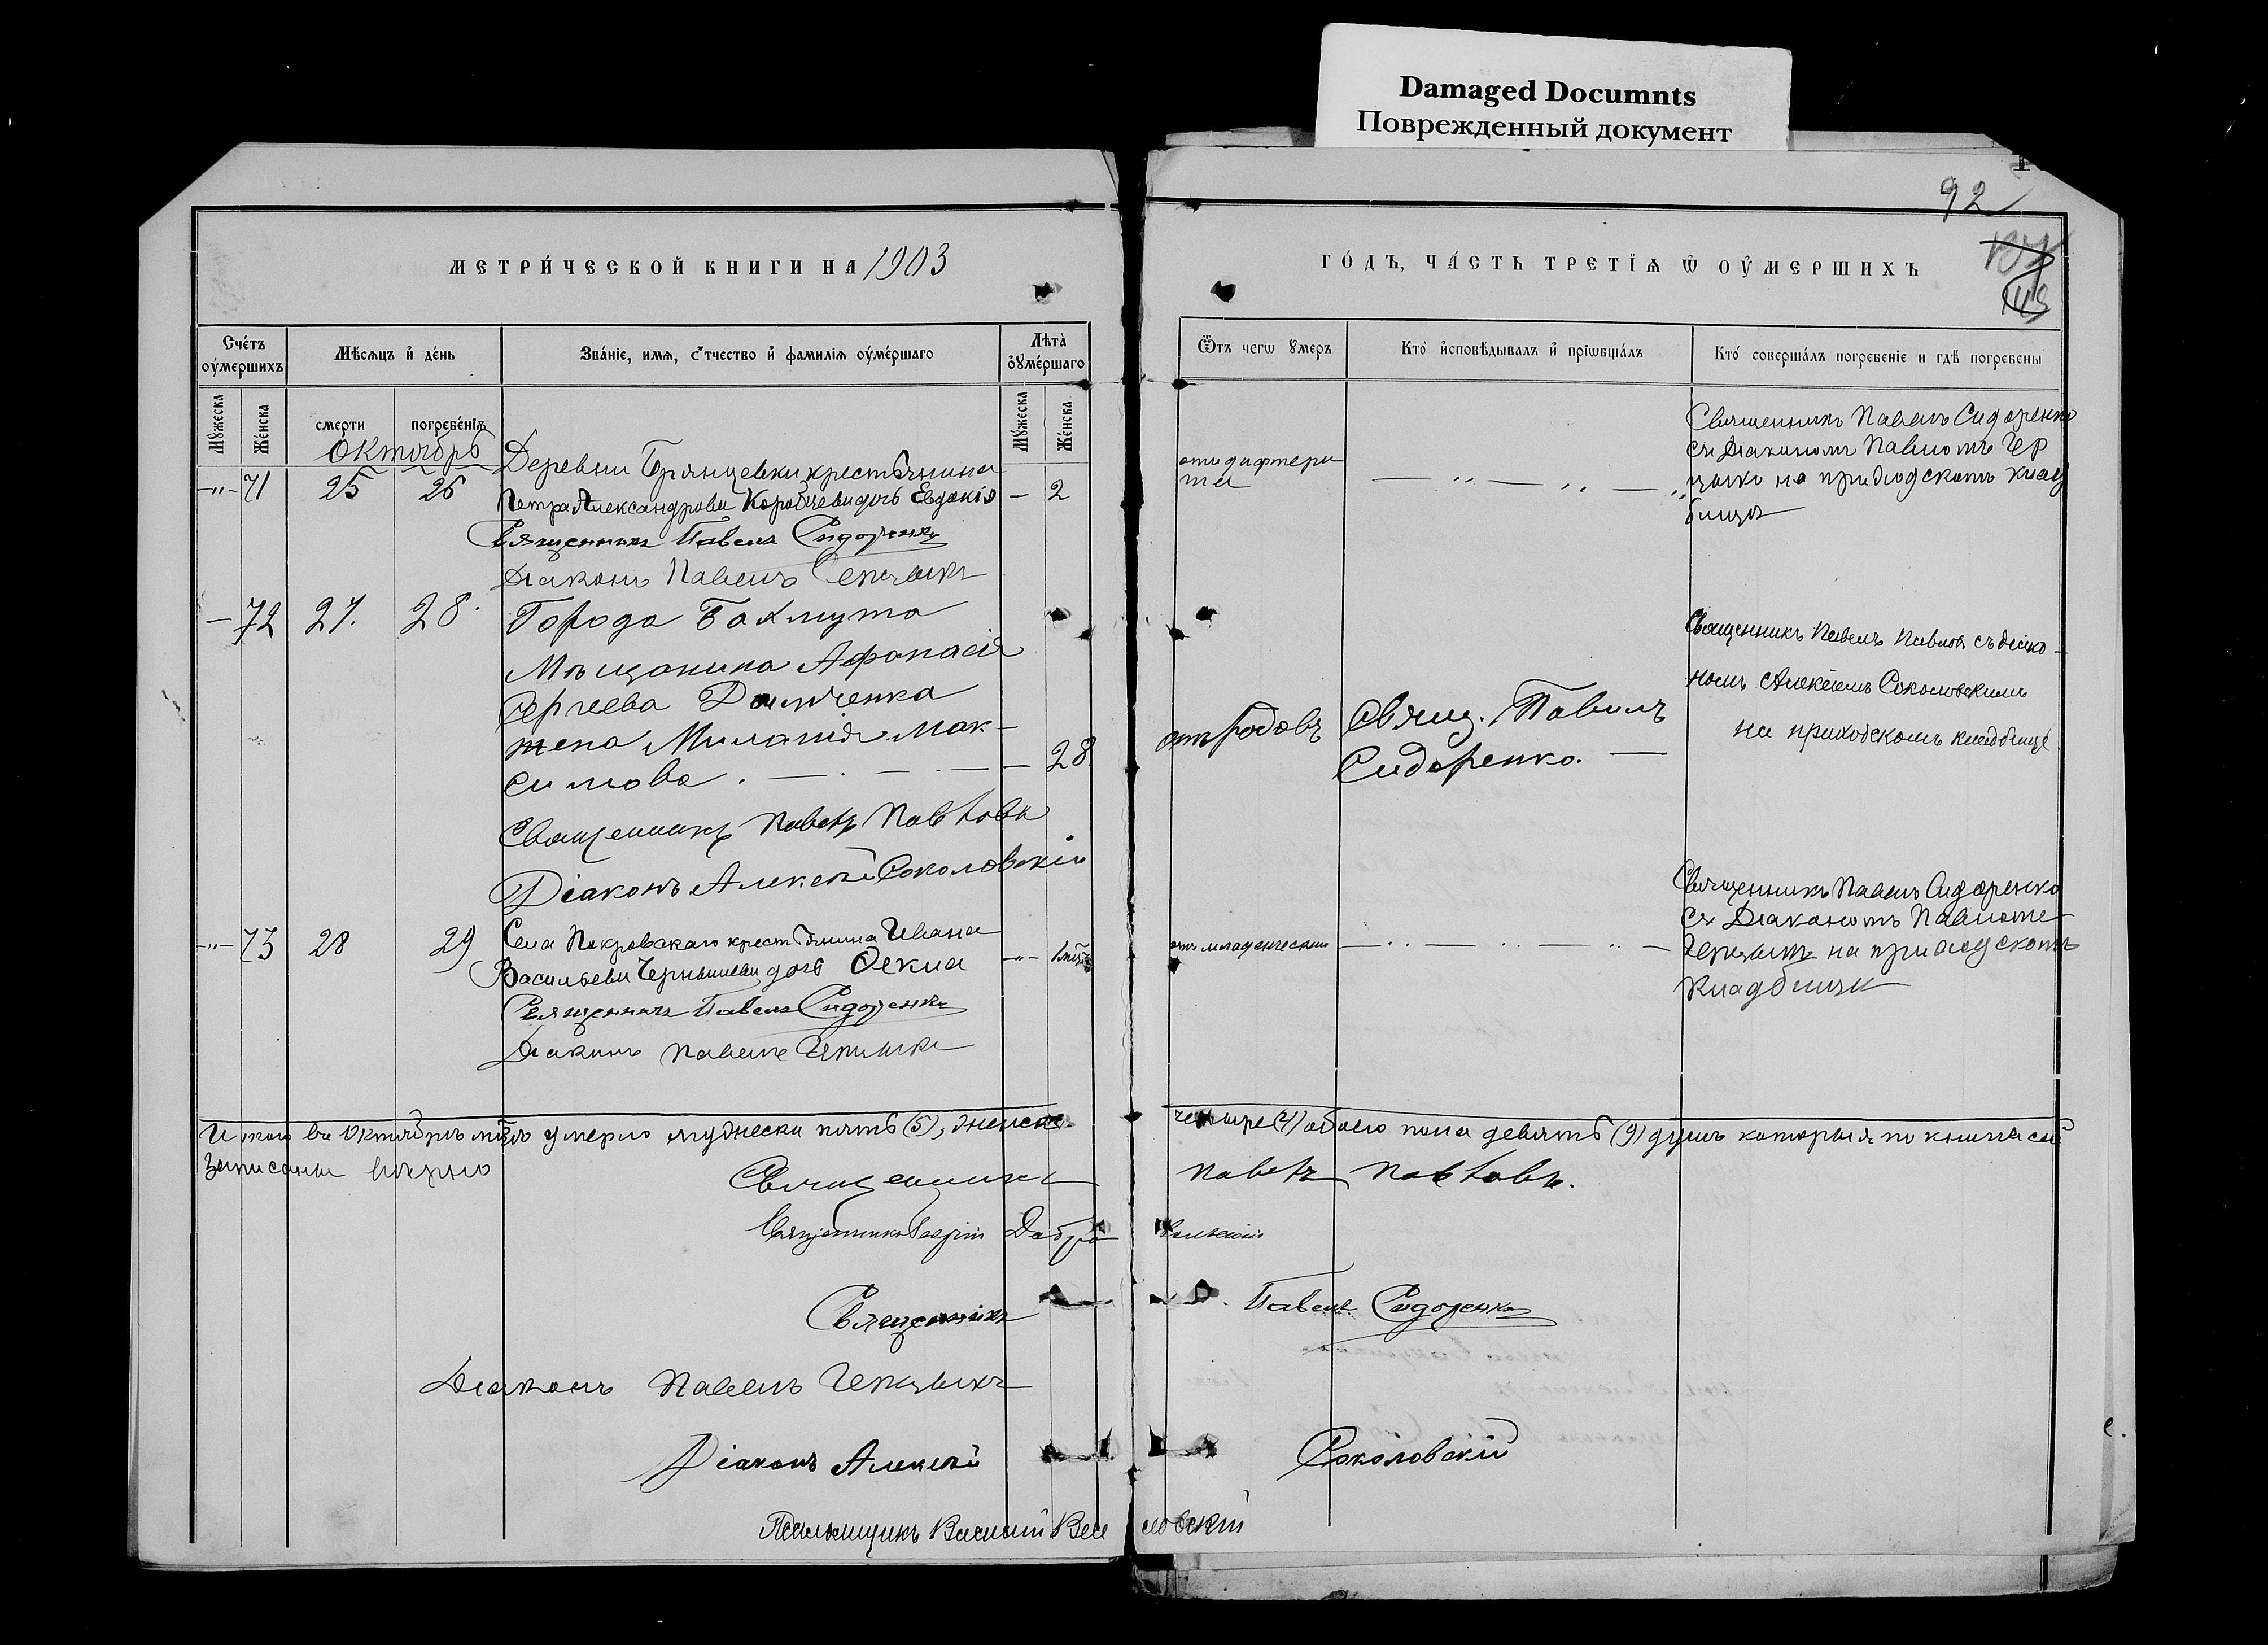 Damaged Documnts
Поврежденный документ
92
МЕТРИ́ЧЕСКОЙ КНИГИ НА 1903
ГО́ДЪ, ЧА́СТЬ ТРЕТІѦ Ѡ ОУ҆МЕРШИХЪ
Сче́тъ оу҆ме́ршихъ
Мѣсяцъ и҆ де́нь
Зва́ніе, имѧ, о́тчество и҆ фамилія оу҆ме́ршаго
Лѣта̀ оу҆ме́ршаго
Ѿтъ чегѡ ᲂумеръ
Кто̀ и҆сповѣ́дывалъ и҆ прїѡбща́лъ
Кто́ соверша́лъ погребеніе и гдѣ погребены
Му́жеска
Же́нска
смерти
погребе́нія
Му́жеска
Же́нска
Октябрь
71 25 26
Деревни Брянцевки крестьянина
Петра Александрова дочь Евдокія — 2
Священникъ Павелъ Сидоренко
Діаконъ Павелъ
отъ дифтерита
Священникъ Павелъ Сидоренко
съ Діакономъ Павломъ
на приходскомъ клад
бищѣ
— 72 27. 28.
Города Бахмута
Мѣщанина Афанасія
Сергеева
жена Миланія Мак-
симова — 28.
Священникъ Павелъ Павловъ
Діаконъ Алексѣй Соколовскій
отъ родовъ
Свящ. Павелъ
Сидоренко. —
Священникъ Павелъ Павловъ съ діако-
номъ Алексѣемъ Соколовскимъ
на приходскомъ кладбищѣ
73 28 29
Села Покровскаго крестьянина Ивана
Васильева Чернышева дочь Фекла
Священникъ Павелъ Сидоренко
Діаконъ Павелъ
отъ младенческой
Священникъ Павелъ Сидоренко
съ Діакономъ Павломъ
на приходскомъ
кладбищѣ
Итого въ Октябрѣ м-цѣ умерло мужеска пять (5), женска четыре (4) обоего пола девять (9) душъ которыя по книгѣ сей
записаны вѣрно
Священникъ Павелъ Павловъ.
Священникъ Добровольскій
Священникъ Павелъ Сидоренко
Діаконъ Павелъ
Діаконъ Алексѣй Соколовскій
Псаломщикъ Василій Веселовскій